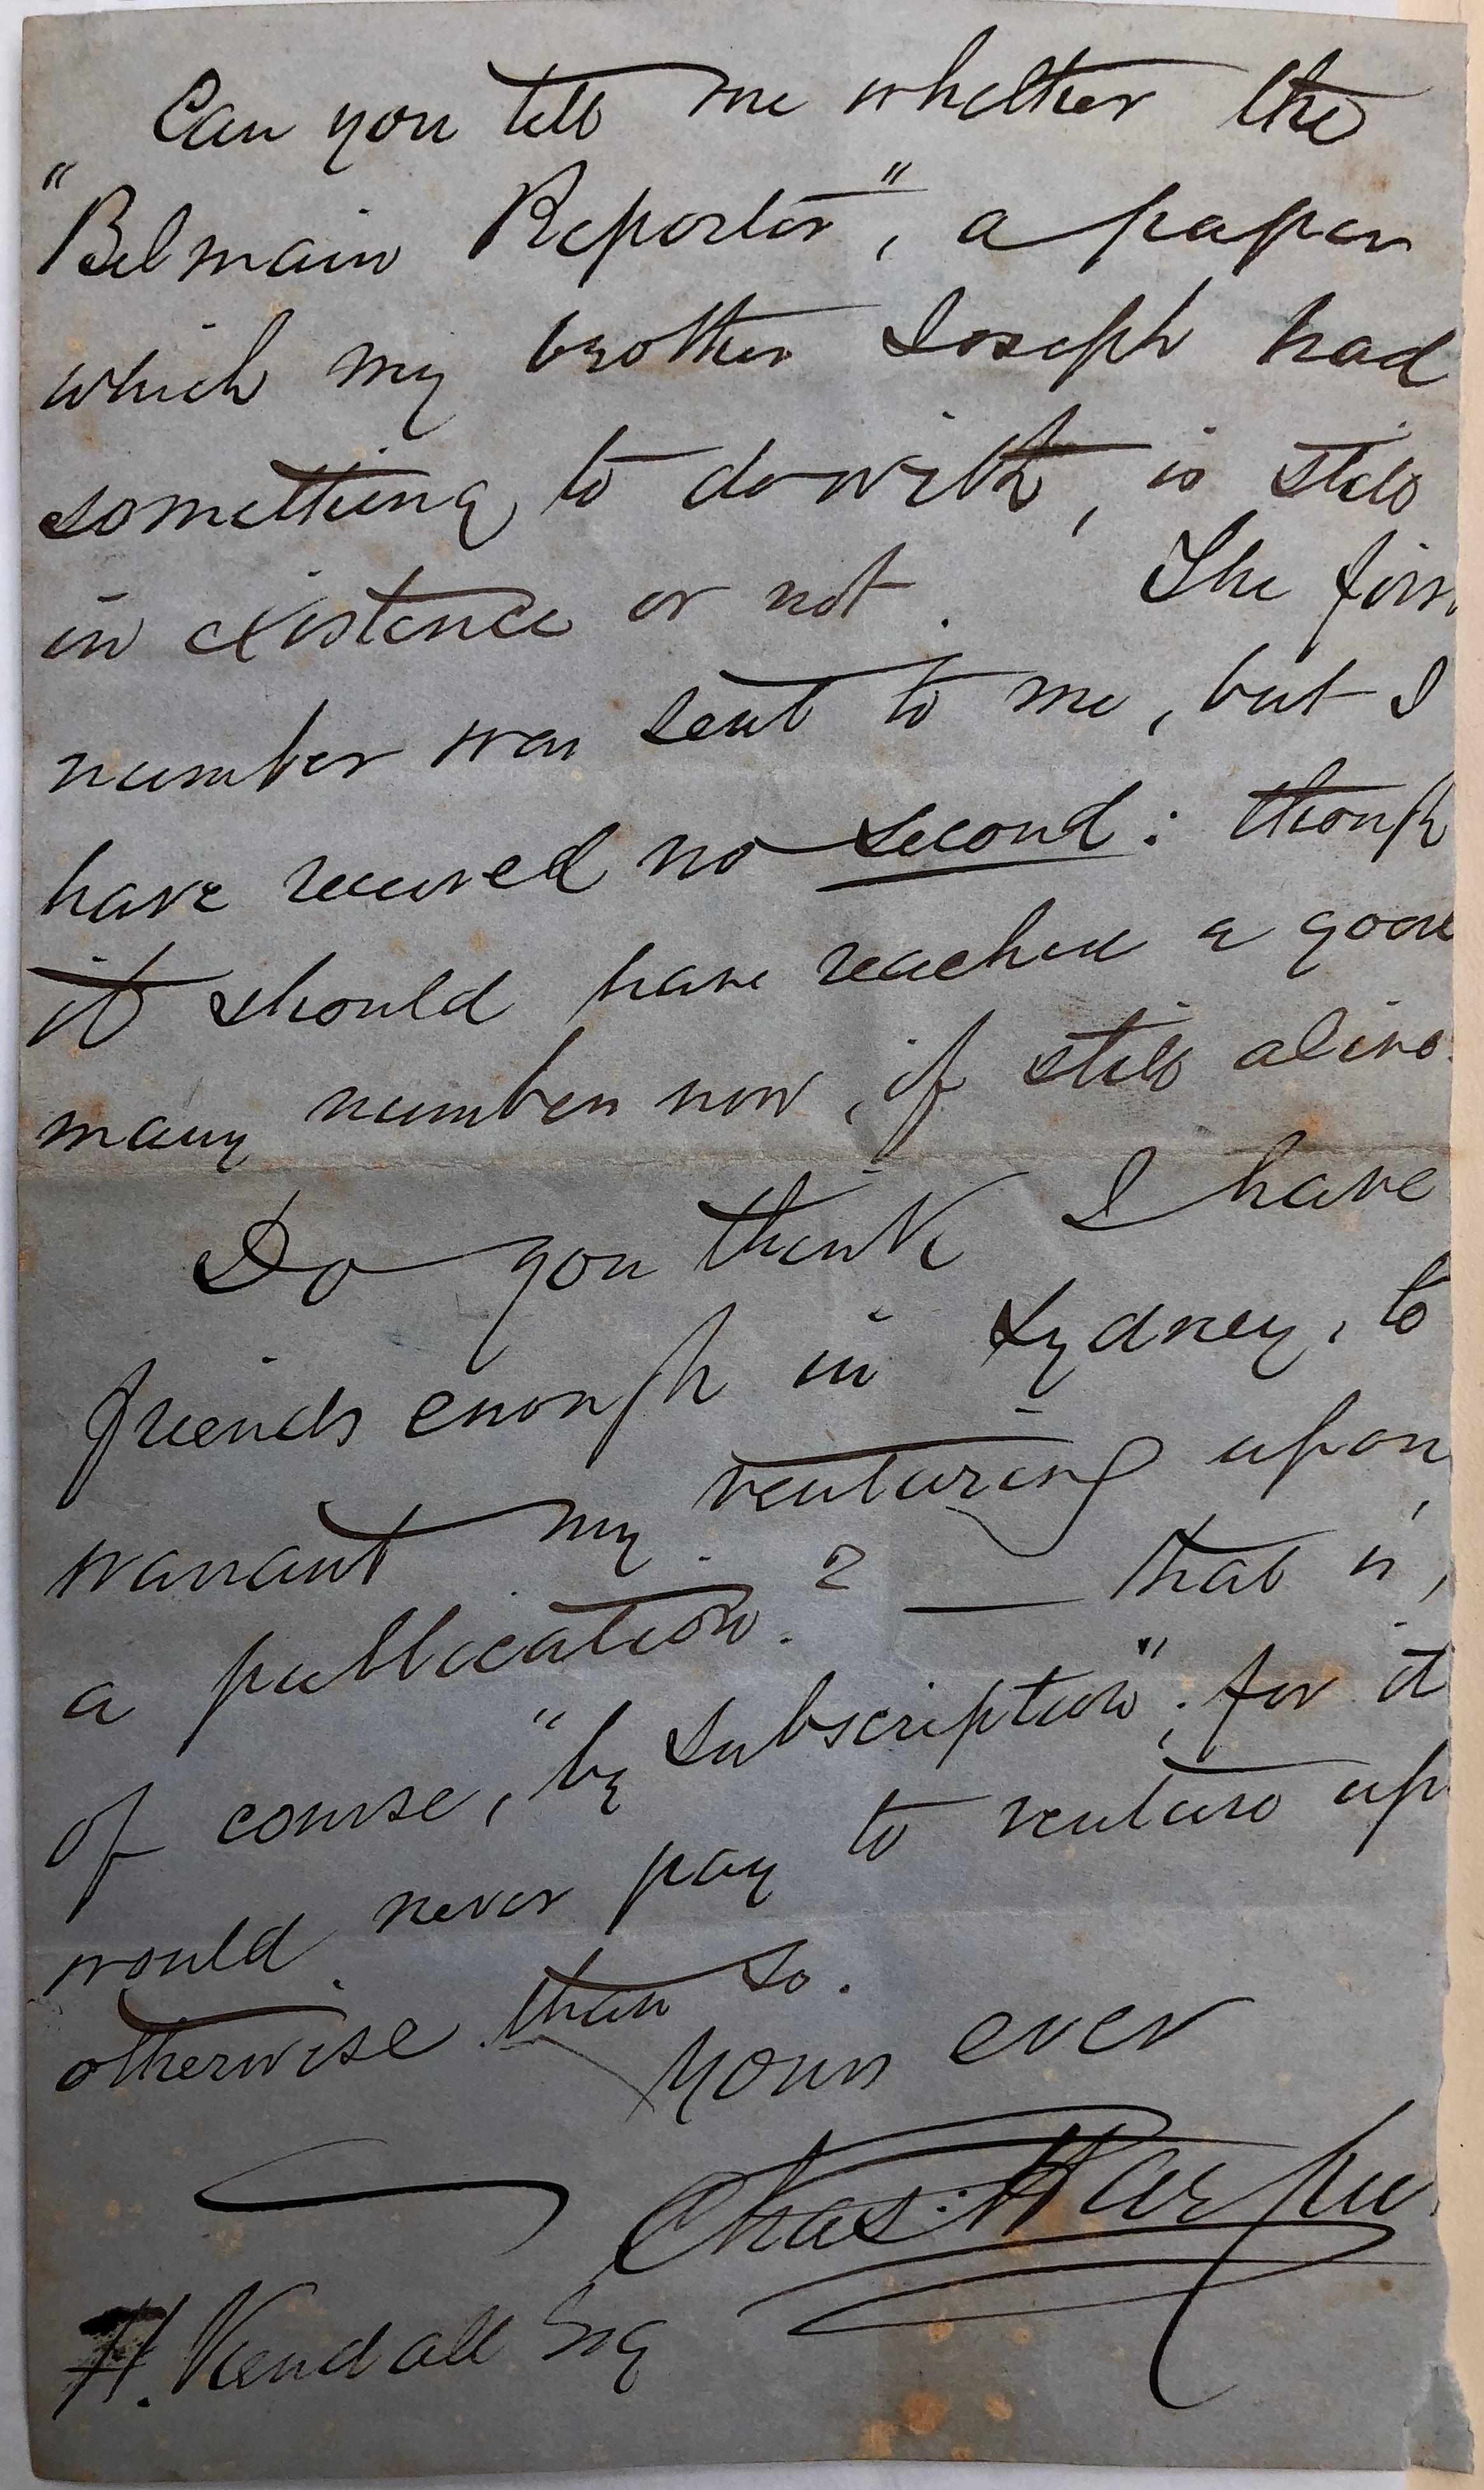 Can you tell me whether the
"Belmain Reporter", a paper
which my brother Joseph had
something to do with, is still
in existence or not. The firs
number was sent to me, but I
have received no second: though
it should have reached a good
many number now, if still alive.
Do you think I have
friends enough in Sydney, to
warrant my venturing upon
a publication? — that is,
of course, "by subscription"; for it
would never pay to venture up
otherwise than so.
Yours ever
Chas. Harpu
H. Kendall Esq